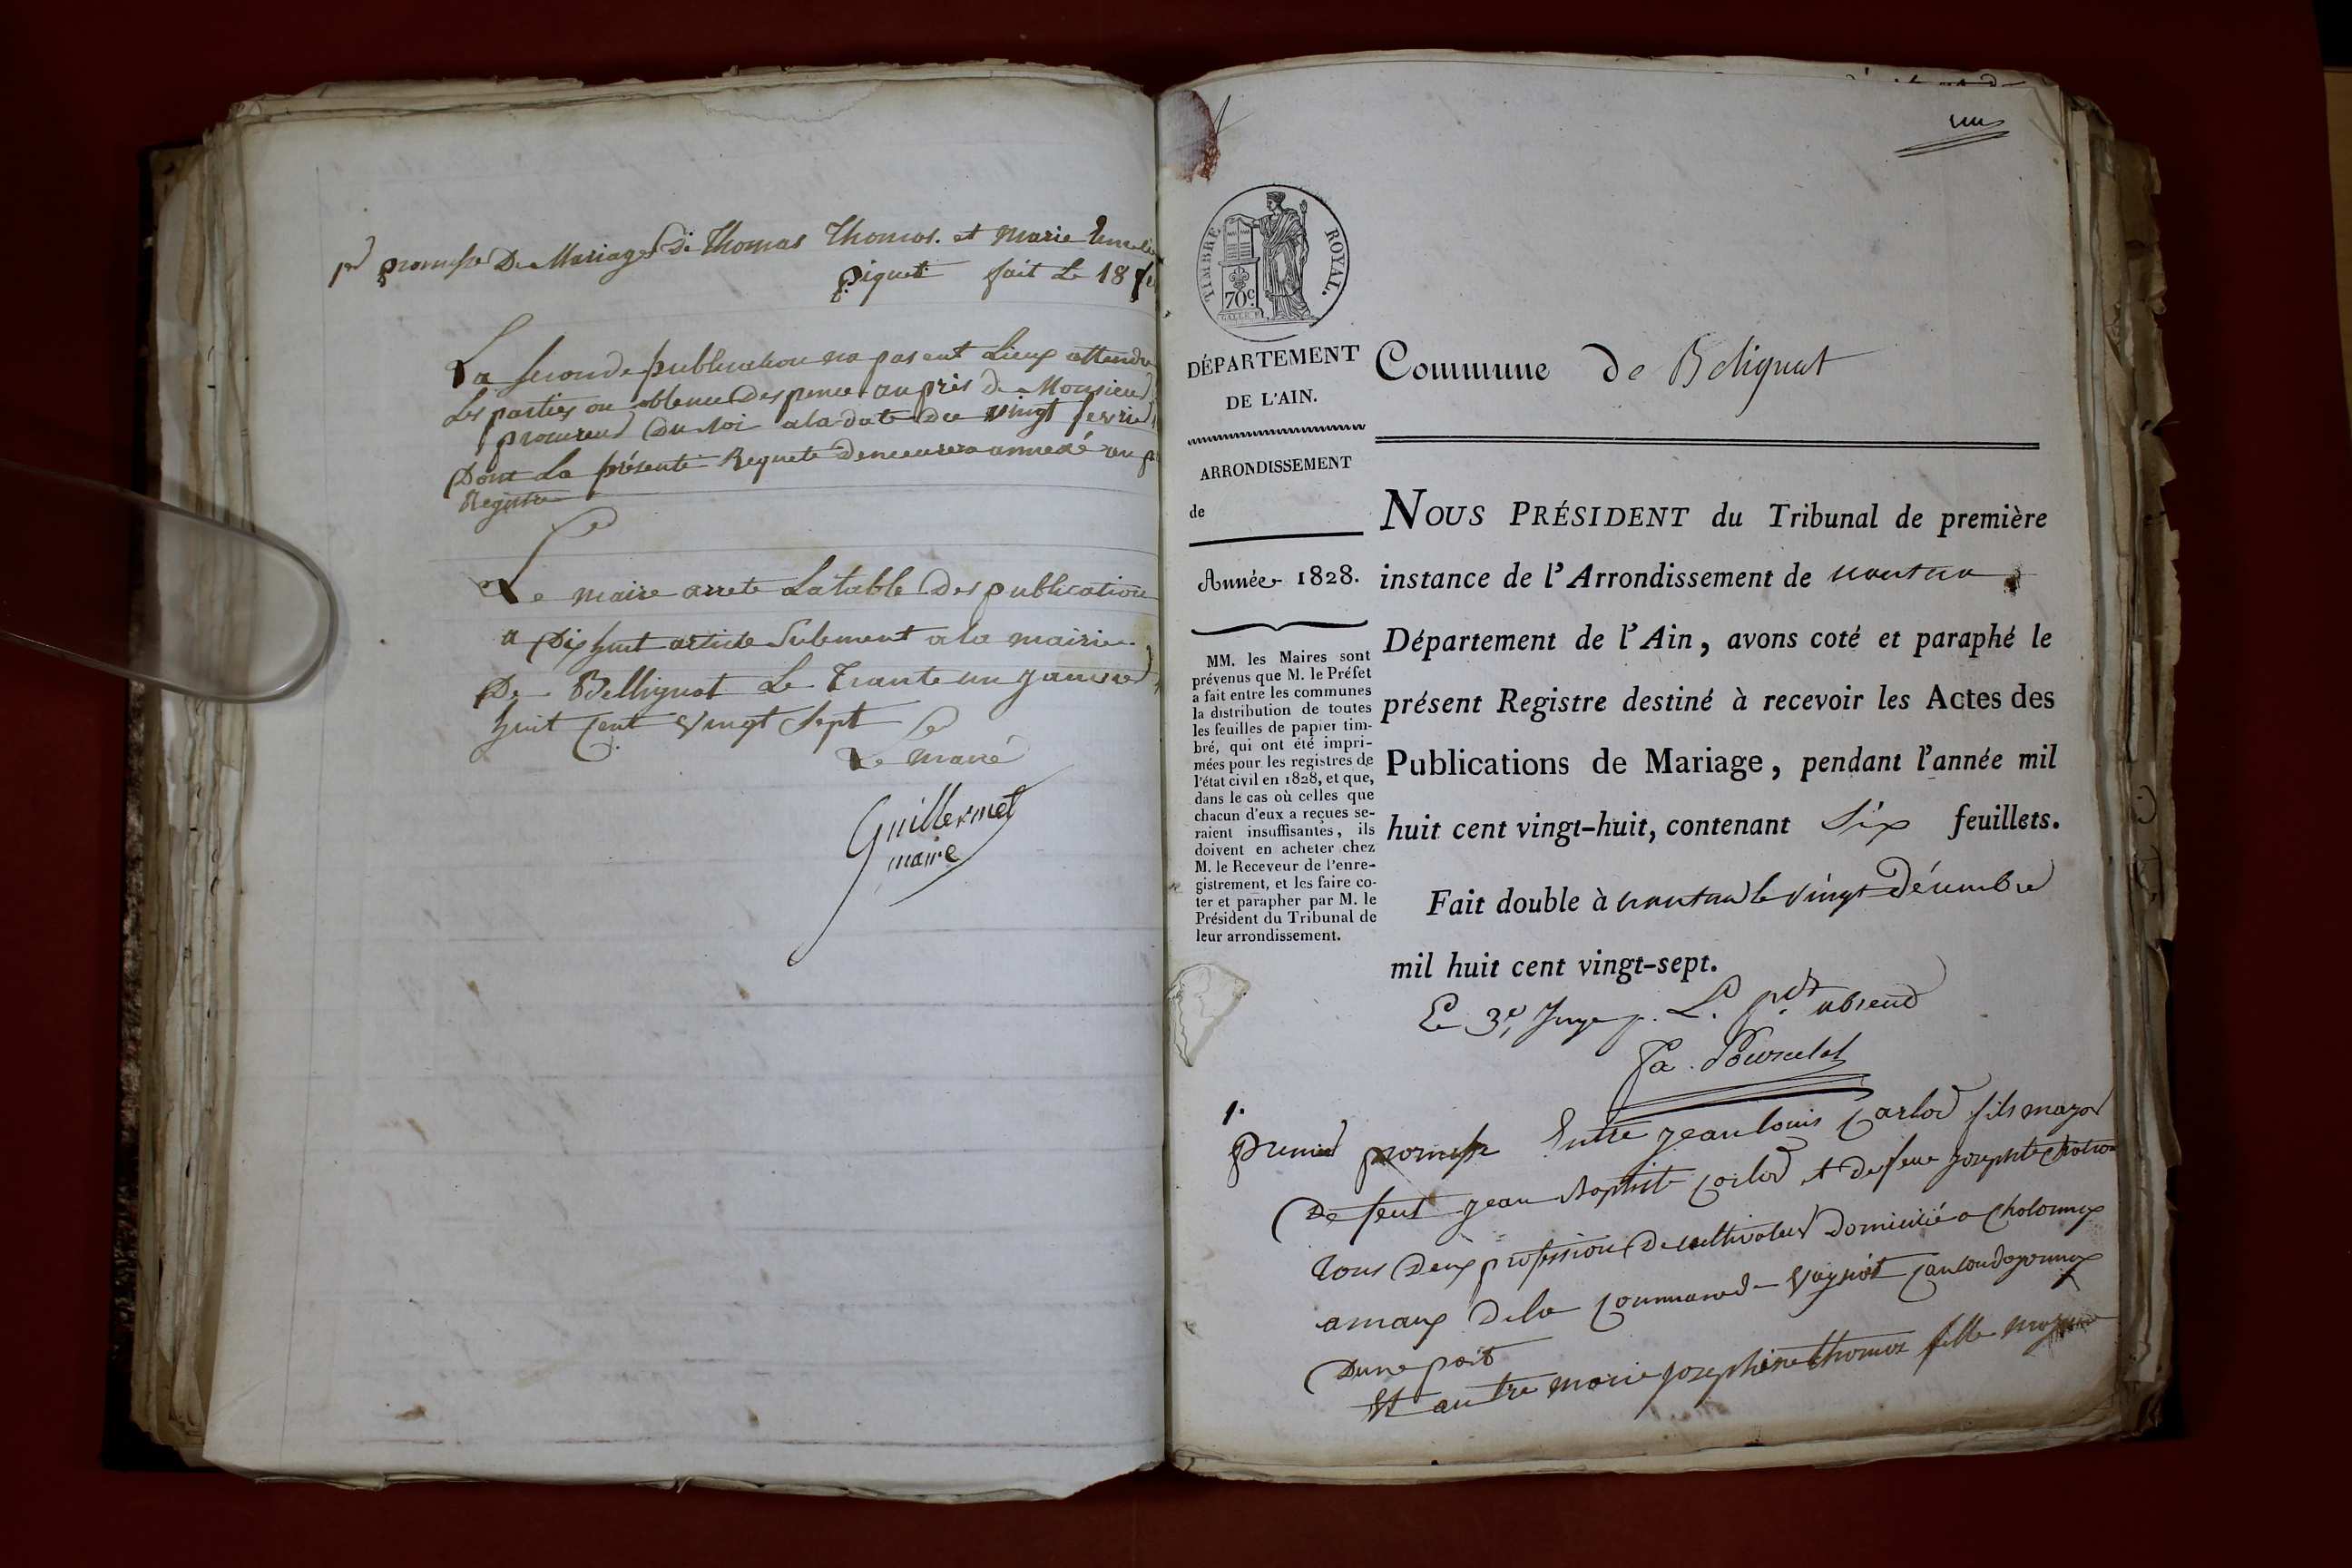 1er promesse De Mariage De Thomas Thomas. et Marie
piquet fait Le 18
La seconde publication na pas eut Lieux attendu
Les parties on obtenue Despence au près de Monsieur
procureur Du roi a la date Du vingt fevrier
Dont La présente Requete Demeurera annexé au
Registre
Le maire arrete La table Des publication
a Dix huit article Sulement a la mairie
De Bellignat Le Trante un janvier
huit Cent vingt Sept
Le maire
Guillermet
maire
un
TIMBRE ROYAL.
70c
DÉPARTEMENT
DE L'AIN.
ARRONDISSEMENT
de
Année 1828.
MM. les Maires sont
prévenus que M. le Préfet
a fait entre les communes
la distribution de toutes
les feuilles de papier tim-
bré, qui ont été impri-
mées pour les registres de
l'état civil en 1828, et que,
dans le cas où celles que
chacun d'eux a reçues se-
raient insuffisantes, ils
doivent en acheter chez
M. le Receveur de l'enre-
gistrement, et les faire co-
ter et parapher par M. le
Président du Tribunal de
leur arrondissement.
Commune de Belignat
NOUS PRÉSIDENT du Tribunal de première
instance de l'Arrondissement de nantua
Département de l'Ain, avons coté et paraphé le
présent Registre destiné à recevoir les Actes des
Publications de Mariage, pendant l'année mil
huit cent vingt-huit, contenant Six feuillets.
Fait double à nantua le vingt Décembre
mil huit cent vingt-sept.
Le 3e Juge p. L. pdt absend
1.
premier promesse Entre jean louis Carlod fils major
De feut jean Baptiste Carlod et De feue josephte
Tous Deux profession De cultivateur Domicilié a
amaux De la Commune De
Dune part
Et autre marie josephine thomas fille